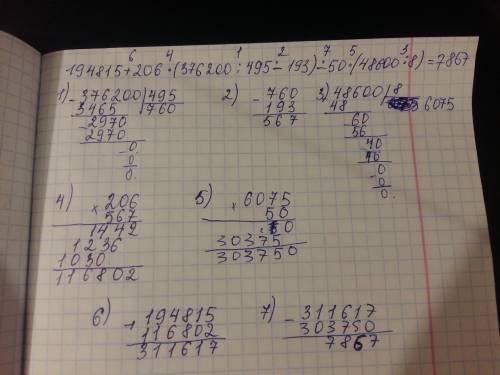 6 4 1 2 7 5 3
194815+206·(376200:495-193)-50·(48600:8)=7867
1) 376200 | 495
- 3465 | 760
- 2970
2970
- 0
0
0.
2) - 760
193
567
3) 48600 | 8
48 | 6075
- 60
56
- 40
40
- 0
0
0.
4) × 206
567
1442
1236
1030
116802
5) × 6075
50
0
30375
303750
6) + 194815
116802
311617
7) - 311617
303750
7867